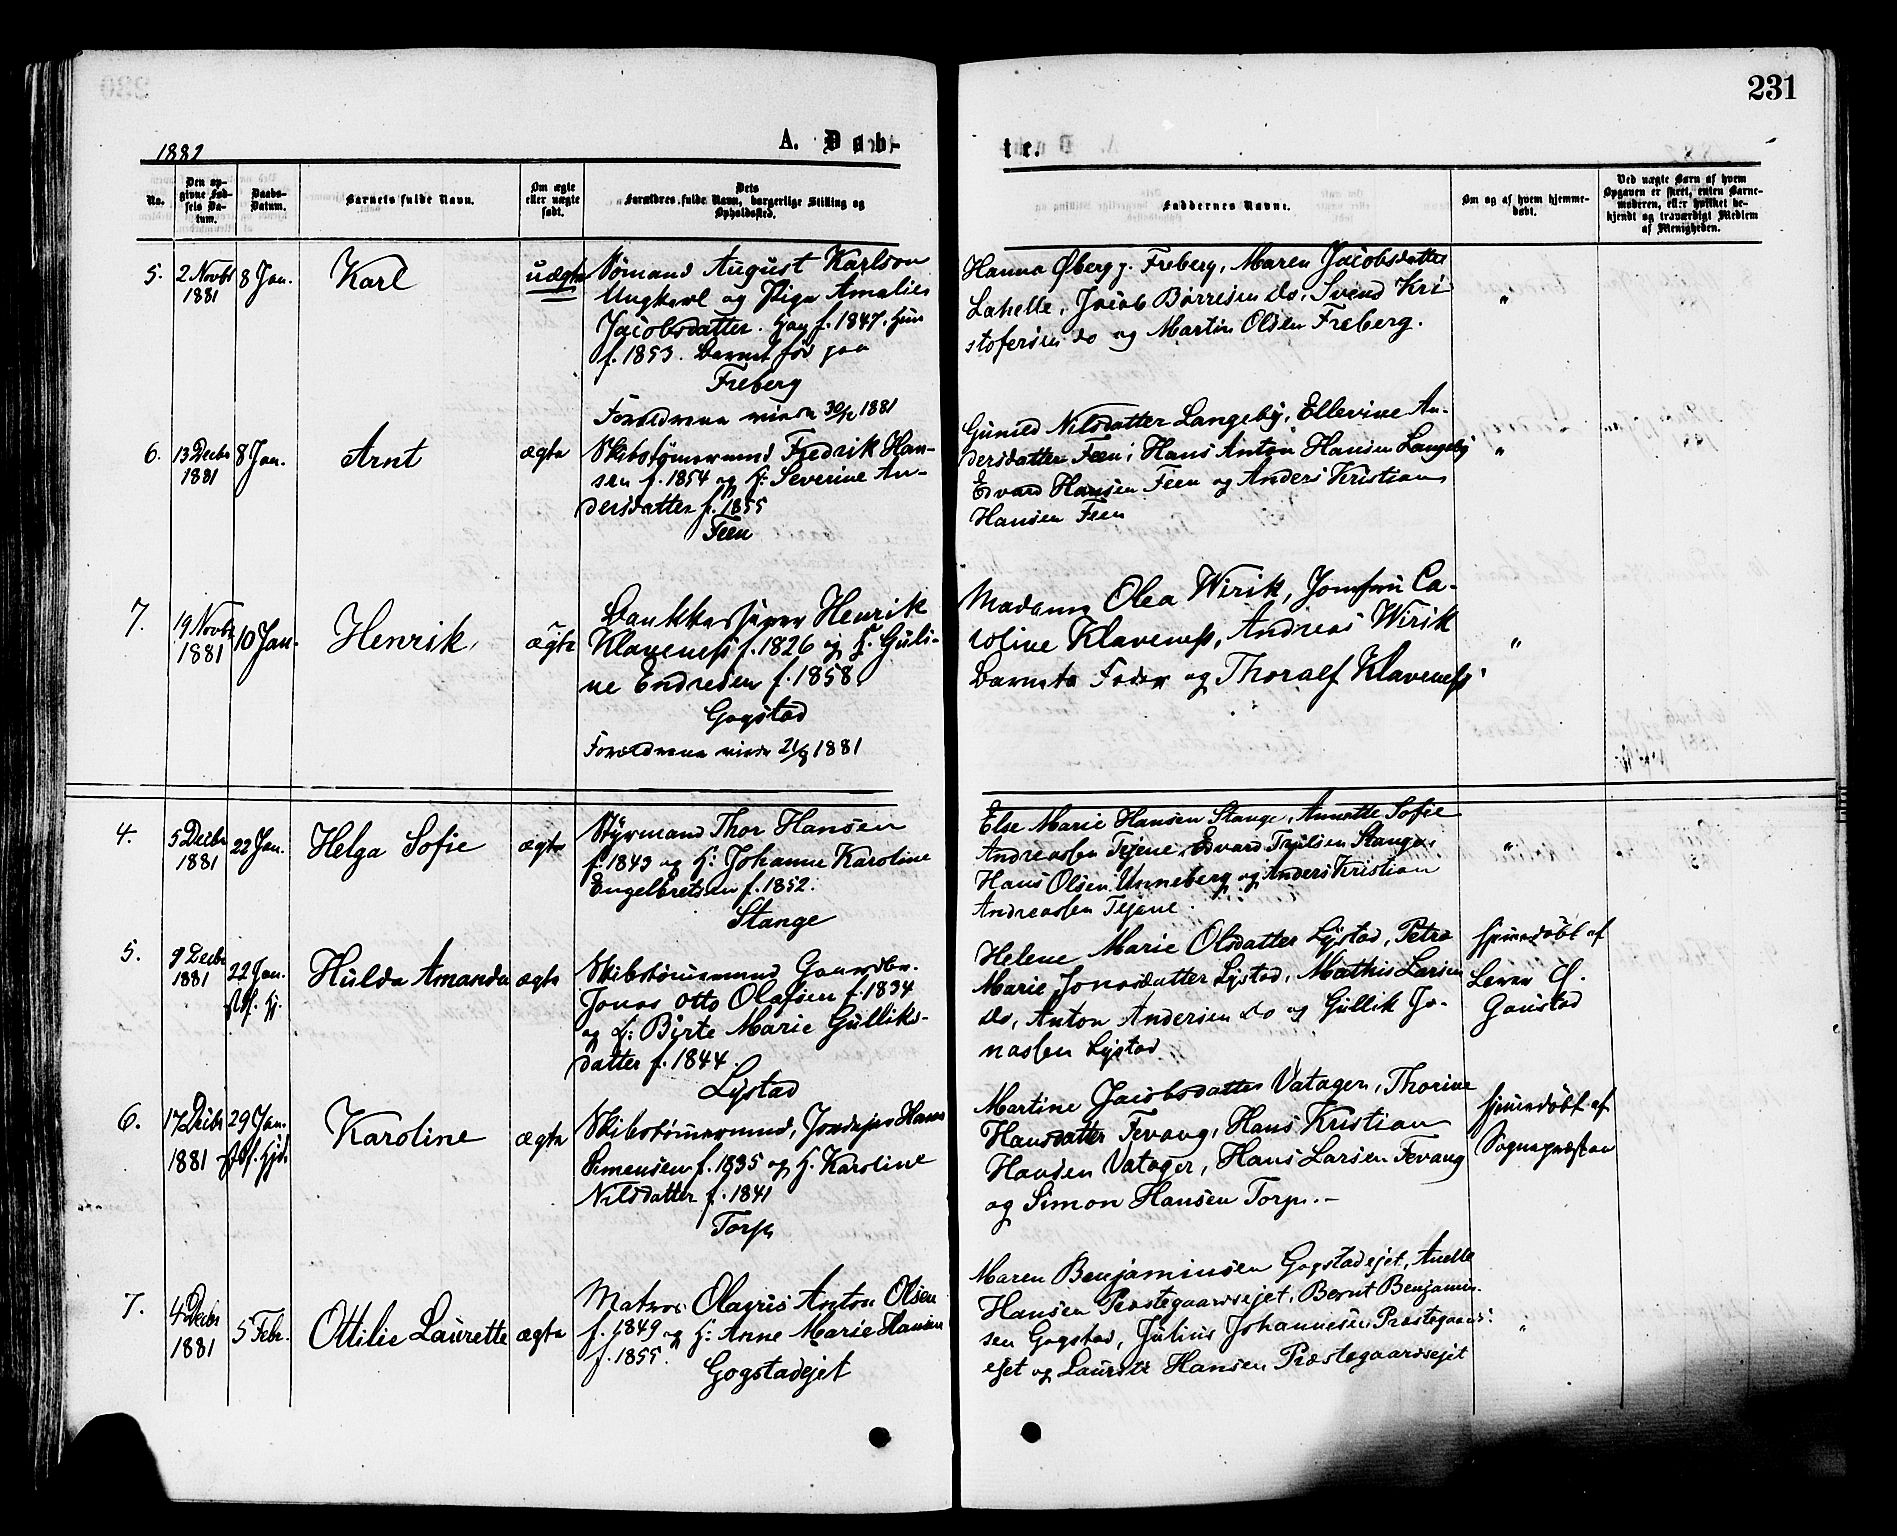 231
1882
A. Døb-
te.
No.
Den op-
givne Fød-
sels Da-
tum.
Daabs-
Datum.
Barnets fulde Navn.
Om ægte
eller uægte
født.
Dets
Forældres fulde Navn, borgerlige Stilling og
Opholdssted.
Faddernes Navne.
Om og af hvem hjemme-
døbt.
Ved uægte Barn af hvem
Opgaven er skeet, enten Barne-
moderen, eller hvilket be-
kjendt og troværdigt Medlem
af Menigheden.
5.
2 Novbr
1881
8 Jan.
Karl
uægte
Sømand August Karlson
Ungkarl og Pige Amalie
Jacobsdatter. Han f. 1847. Hun
f. 1853. Barnet før paa
Freberg
Hanna Øberg p. Freberg, Maren Jacobsdatter
Lahelle, Jacob Børresen do, Svend Kri
stofersen do og Martin Olsen Freberg.
"
6.
13 Decbr
1881
8 Jan.
Arnt
ægte
Forældrene viede 30/12 1881
Skibstømmermand Fredrik Han-
sen f. 1854 og H: Severine An-
dersdatter f. 1855
Feen
Guneld Nilsdatter Langeby, Ellevine An-
dersdatter Feen, Hans Anton Hansen Langeby
Edvard Hansen Feen og Anders Kristian
Hansen Feen
"
7.
19 Novbr
1881
10 Jan.
Henrik
ægte
Bankkasserer Henrik
Klaveness f. 1826 og F. Guli-
ne Endresen f. 1858
Gogstad
Forældrene viede 21/8 1881
Madame Olea Wirik, Jomfru Ca-
roline Klaveness, Andreas Wirik
Barnets Fader og Thoralf Klaveness
"
4.
5 Decbr
1881
22 Jan.
Helga Sofie
ægte
Styrmand Thor Hansen
f. 1843 og H: Johanne Karoline
Engelbretsen f. 1852.
Stange
Else Marie Hansen Stange, Annette Sofie
Andreassen Tejene, Edvard Trulsen Stange,
Hans Olsen Unneberg og Anders Kristian
Andreassen Tejene.
"
5.
9 Decbr
1881
22 Jan.
Hulda Amanda
ægte
Skibstømmermand Gaardbr.
Jonas Otto Olafsen f. 1834
og H: Birte Marie Gulliks-
datter f. 1844.
Lystad
Helene Marie Olsdatter Lystad, Petra
Marie Jonasdatter Lystad, Mathis Larsen
do, Anton Andersen do og Gullik Jo-
nassen Lystad
Hjemdøbt af
Gaustad
6.
17 Decbr
1881
29 Jan.
Karoline
ægte
Skibstømmermand, Jordejer Hans
Simensen f. 1835 og H. Karoline
Nilsdatter f. 1841
Torp
Martine Jacobsdatter Vatager, Thorine
Hansdatter Fevang, Hans Kristian
Hansen Vatager, Hans Larsen Fevang
og Simon Hansen Torp. –
Hjemdøbt af
Sognepræsten
7.
4 Decbr
1881
5 Febr.
Ottilie Laurette
ægte
Matros Olavus Anton Olsen
f. 1849 og H: Anne Marie Hansen
f. 1855.
Gogstadejet
Maren Benjaminsen Gogstadejet, Anette
Hansen Præstegaardsejet, Bernt Benjamin-
sen Gogstad, Julius Johannesen Præstegaards-
ejet og Lauritz Hansen Præstegaardsejet
"